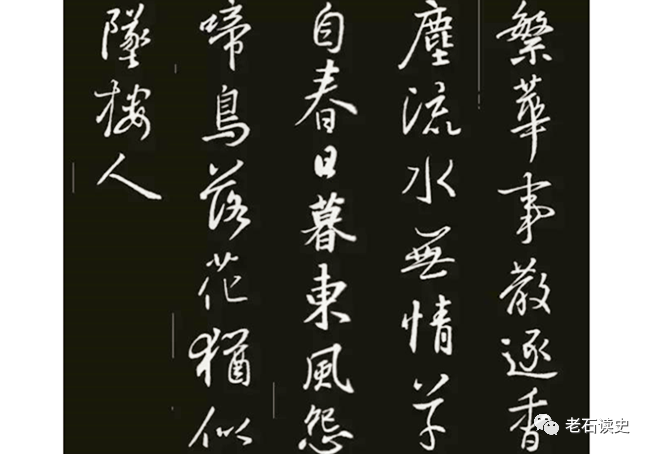 繁華事散逐香
塵流水無情草
自春日暮東風怨
啼鳥落花猶似
墜樓人
老石读史